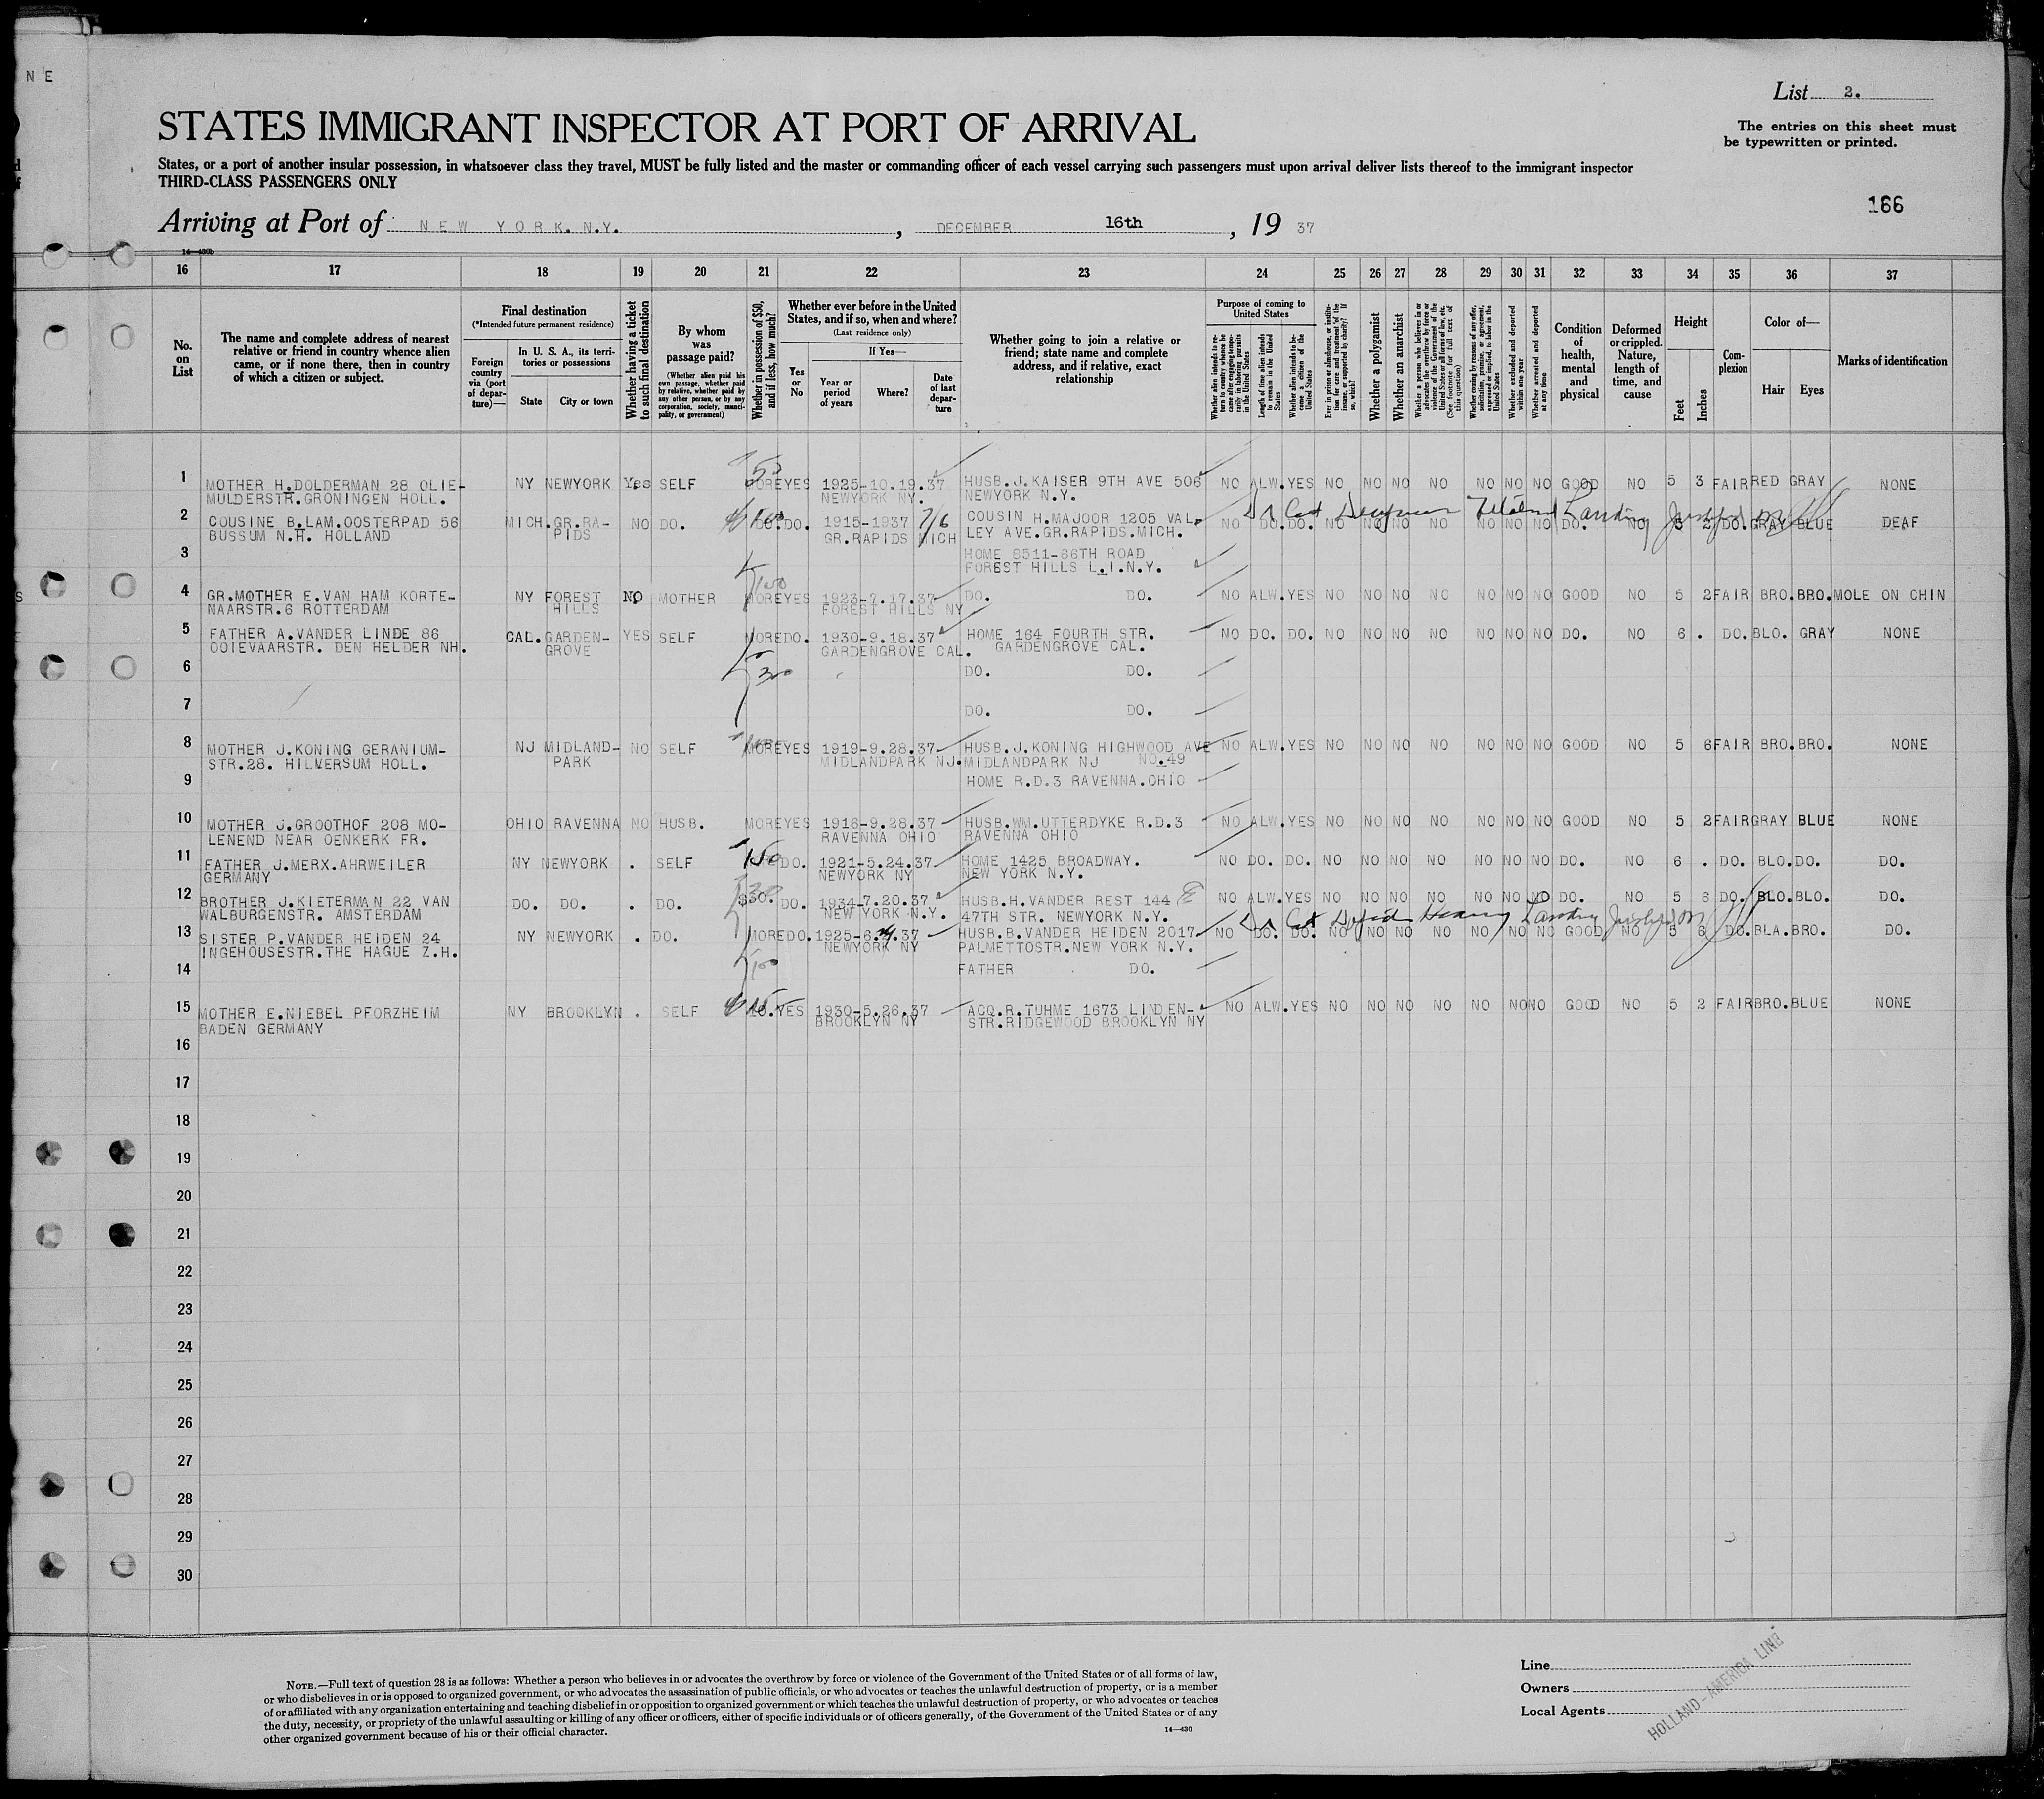 N E
List 2.
STATES IMMIGRANT INSPECTOR AT PORT OF ARRIVAL
The entries on this sheet must
be typewritten or printed.
States, or a port of another insular possession, in whatsoever class they travel, MUST be fully listed and the master or commanding officer of each vessel carrying such passengers must upon arrival deliver lists thereof to the immigrant inspector
THIRD-CLASS PASSENGERS ONLY
166
Arriving at Port of NEW YORK. N.Y. , DECEMBER 16th , 19 37
16 17 18 19 20 21 22 23 24 25 26 27 28 29 30 31 32 33 34 35 36 37
No. on List
The name and complete address of nearest
relative or friend in country whence alien
came, or if none there, then in country
of which a citizen or subject.
Final destination
(*Intended future permanent residence)
Foreign country via (port of departure)—
In U. S. A., its territories or possessions
State City or town
Whether having a ticket to such final destination
By whom was passage paid?
(Whether alien paid his own passage, whether paid by relative, whether paid by any other person, or by any corporation, society, municipality, or government)
Whether in possession of $50, and if less, how much?
Whether ever before in the United
States, and if so, when and where?
(Last residence only)
Yes or No
If Yes—
Year or period of years
Where?
Date of last departure
Whether going to join a relative or
friend; state name and complete
address, and if relative, exact
relationship
Purpose of coming to United States
Whether alien intends to return to country whence he came after engaging temporarily in laboring pursuits in the United States
Length of time alien intends to remain in the United States
Whether alien intends to become a citizen of the United States
Ever in prison or almshouse, or institution for care and treatment of the insane, or supported by charity? If so, which?
Whether a polygamist
Whether an anarchist
Whether a person who believes in or advocates the overthrow by force or violence of the Government of the United States or all forms of law, etc. (See footnote for full text of this question)
Whether coming by reasons of any offer, solicitation, promise, or agreement, expressed or implied, to labor in the United States
Whether excluded and deported within one year
Whether arrested and deported at any time
Condition of health, mental and physical
Deformed or crippled. Nature, length of time, and cause
Height
Feet Inches
Complexion
Color of—
Hair Eyes
Marks of identification
1 MOTHER H.DOLDERMAN 28 OLIE- NY NEWYORK Yes SELF 50 MORE YES 1925-10.19.37 HUSB.J.KAISER 9TH AVE 506 NO ALW.YES NO NO NO NO NO NO NO GOOD NO 5 3 FAIR RED GRAY NONE
MULDERSTR.GRONINGEN HOLL. NEWYORK NY. NEWYORK N.Y.
2 COUSINE B.LAM.OOSTERPAD 56 MICH.GR.RA- NO DO. DO. DO. 1915-1937 7/6 COUSIN H.MAJOOR 1205 VAL- NO DO. DO. NO NO NO NO NO NO NO DO. NO 5 2 DO. GRAY BLUE DEAF
BUSSUM N.H. HOLLAND PIDS GR.RAPIDS MICH LEY AVE.GR.RAPIDS.MICH.
3 HOME 8511-66TH ROAD
FOREST HILLS L.I.N.Y.
4 GR.MOTHER E.VAN HAM KORTE- NY FOREST NO MOTHER 100 MORE YES 1923-7.17.37 DO. DO. NO ALW.YES NO NO NO NO NO NO NO GOOD NO 5 2 FAIR BRO.BRO. MOLE ON CHIN
NAARSTR.6 ROTTERDAM HILLS FOREST HILLS NY
5 FATHER A.VANDER LINDE 86 CAL.GARDEN- YES SELF MORE DO. 1930-9.18.37 HOME 164 FOURTH STR. NO DO. DO. NO NO NO NO NO NO NO DO. NO 6 . DO. BLO. GRAY NONE
OOIEVAARSTR. DEN HELDER NH. GROVE GARDENGROVE CAL. GARDENGROVE CAL.
6 300 DO. DO.
7 DO. DO.
8 MOTHER J.KONING GERANIUM- NJ MIDLAND- NO SELF MORE YES 1919-9.28.37 HUSB.J.KONING HIGHWOOD AVE NO ALW.YES NO NO NO NO NO NO NO GOOD NO 5 6 FAIR BRO.BRO. NONE
STR.28. HILVERSUM HOLL. PARK MIDLANDPARK NJ. MIDLANDPARK NJ NO.49
9 HOME R.D.3 RAVENNA.OHIO
10 MOTHER J.GROOTHOF 208 MO- OHIO RAVENNA NO HUSB. MORE YES 1916-9.28.37 HUSB.WM.UTTERDYKE R.D.3 NO ALW.YES NO NO NO NO NO NO NO GOOD NO 5 2 FAIR GRAY BLUE NONE
LENEND NEAR OENKERK FR. RAVENNA OHIO RAVENNA OHIO
11 FATHER J.MERX.AHRWEILER NY NEWYORK . SELF 150 DO. 1921-5.24.37 HOME 1425 BROADWAY. NO DO. DO. NO NO NO NO NO NO NO DO. NO 6 . DO. BLO.DO. DO.
GERMANY NEWYORK NY NEW YORK N.Y.
12 BROTHER J.KIETERMAN 22 VAN DO. DO. . DO. $30. DO. 1934-7.20.37 HUSB.H.VANDER REST 144 E NO ALW.YES NO NO NO NO NO NO NO DO. NO 5 6 DO. BLO.BLO. DO.
WALBURGENSTR. AMSTERDAM NEW YORK N.Y. 47TH STR. NEWYORK N.Y.
13 SISTER P.VANDER HEIDEN 24 NY NEWYORK . DO. MORE DO. 1925-6. .37 HUSB.B.VANDER HEIDEN 2017 NO DO. DO. NO NO NO NO NO NO NO GOOD NO 5 6 DO. BLA.BRO. DO.
INGEHOUSESTR.THE HAGUE Z.H. NEWYORK NY PALMETTOSTR.NEW YORK N.Y.
14 100 FATHER DO.
15 MOTHER E.NIEBEL PFORZHEIM NY BROOKLYN . SELF YES 1930-5.26.37 ACQ.R.TUHME 1673 LINDEN- NO ALW.YES NO NO NO NO NO NO NO GOOD NO 5 2 FAIR BRO.BLUE NONE
BADEN GERMANY BROOKLYN NY STR.RIDGEWOOD BROOKLYN NY
16
17
18
19
20
21
22
23
24
25
26
27
28
29
30
NOTE.—Full text of question 28 is as follows: Whether a person who believes in or advocates the overthrow by force or violence of the Government of the United States or of all forms of law,
or who disbelieves in or is opposed to organized government, or who advocates the assassination of public officials, or who advocates or teaches the unlawful destruction of property, or is a member
of or affiliated with any organization entertaining and teaching disbelief in or opposition to organized government or which teaches the unlawful destruction of property, or who advocates or teaches
the duty, necessity, or propriety of the unlawful assaulting or killing of any officer or officers, either of specific individuals or of officers generally, of the Government of the United States or of any
other organized government because of his or their official character.
14—430
Line
Owners
Local Agents
HOLLAND-AMERICA LINE